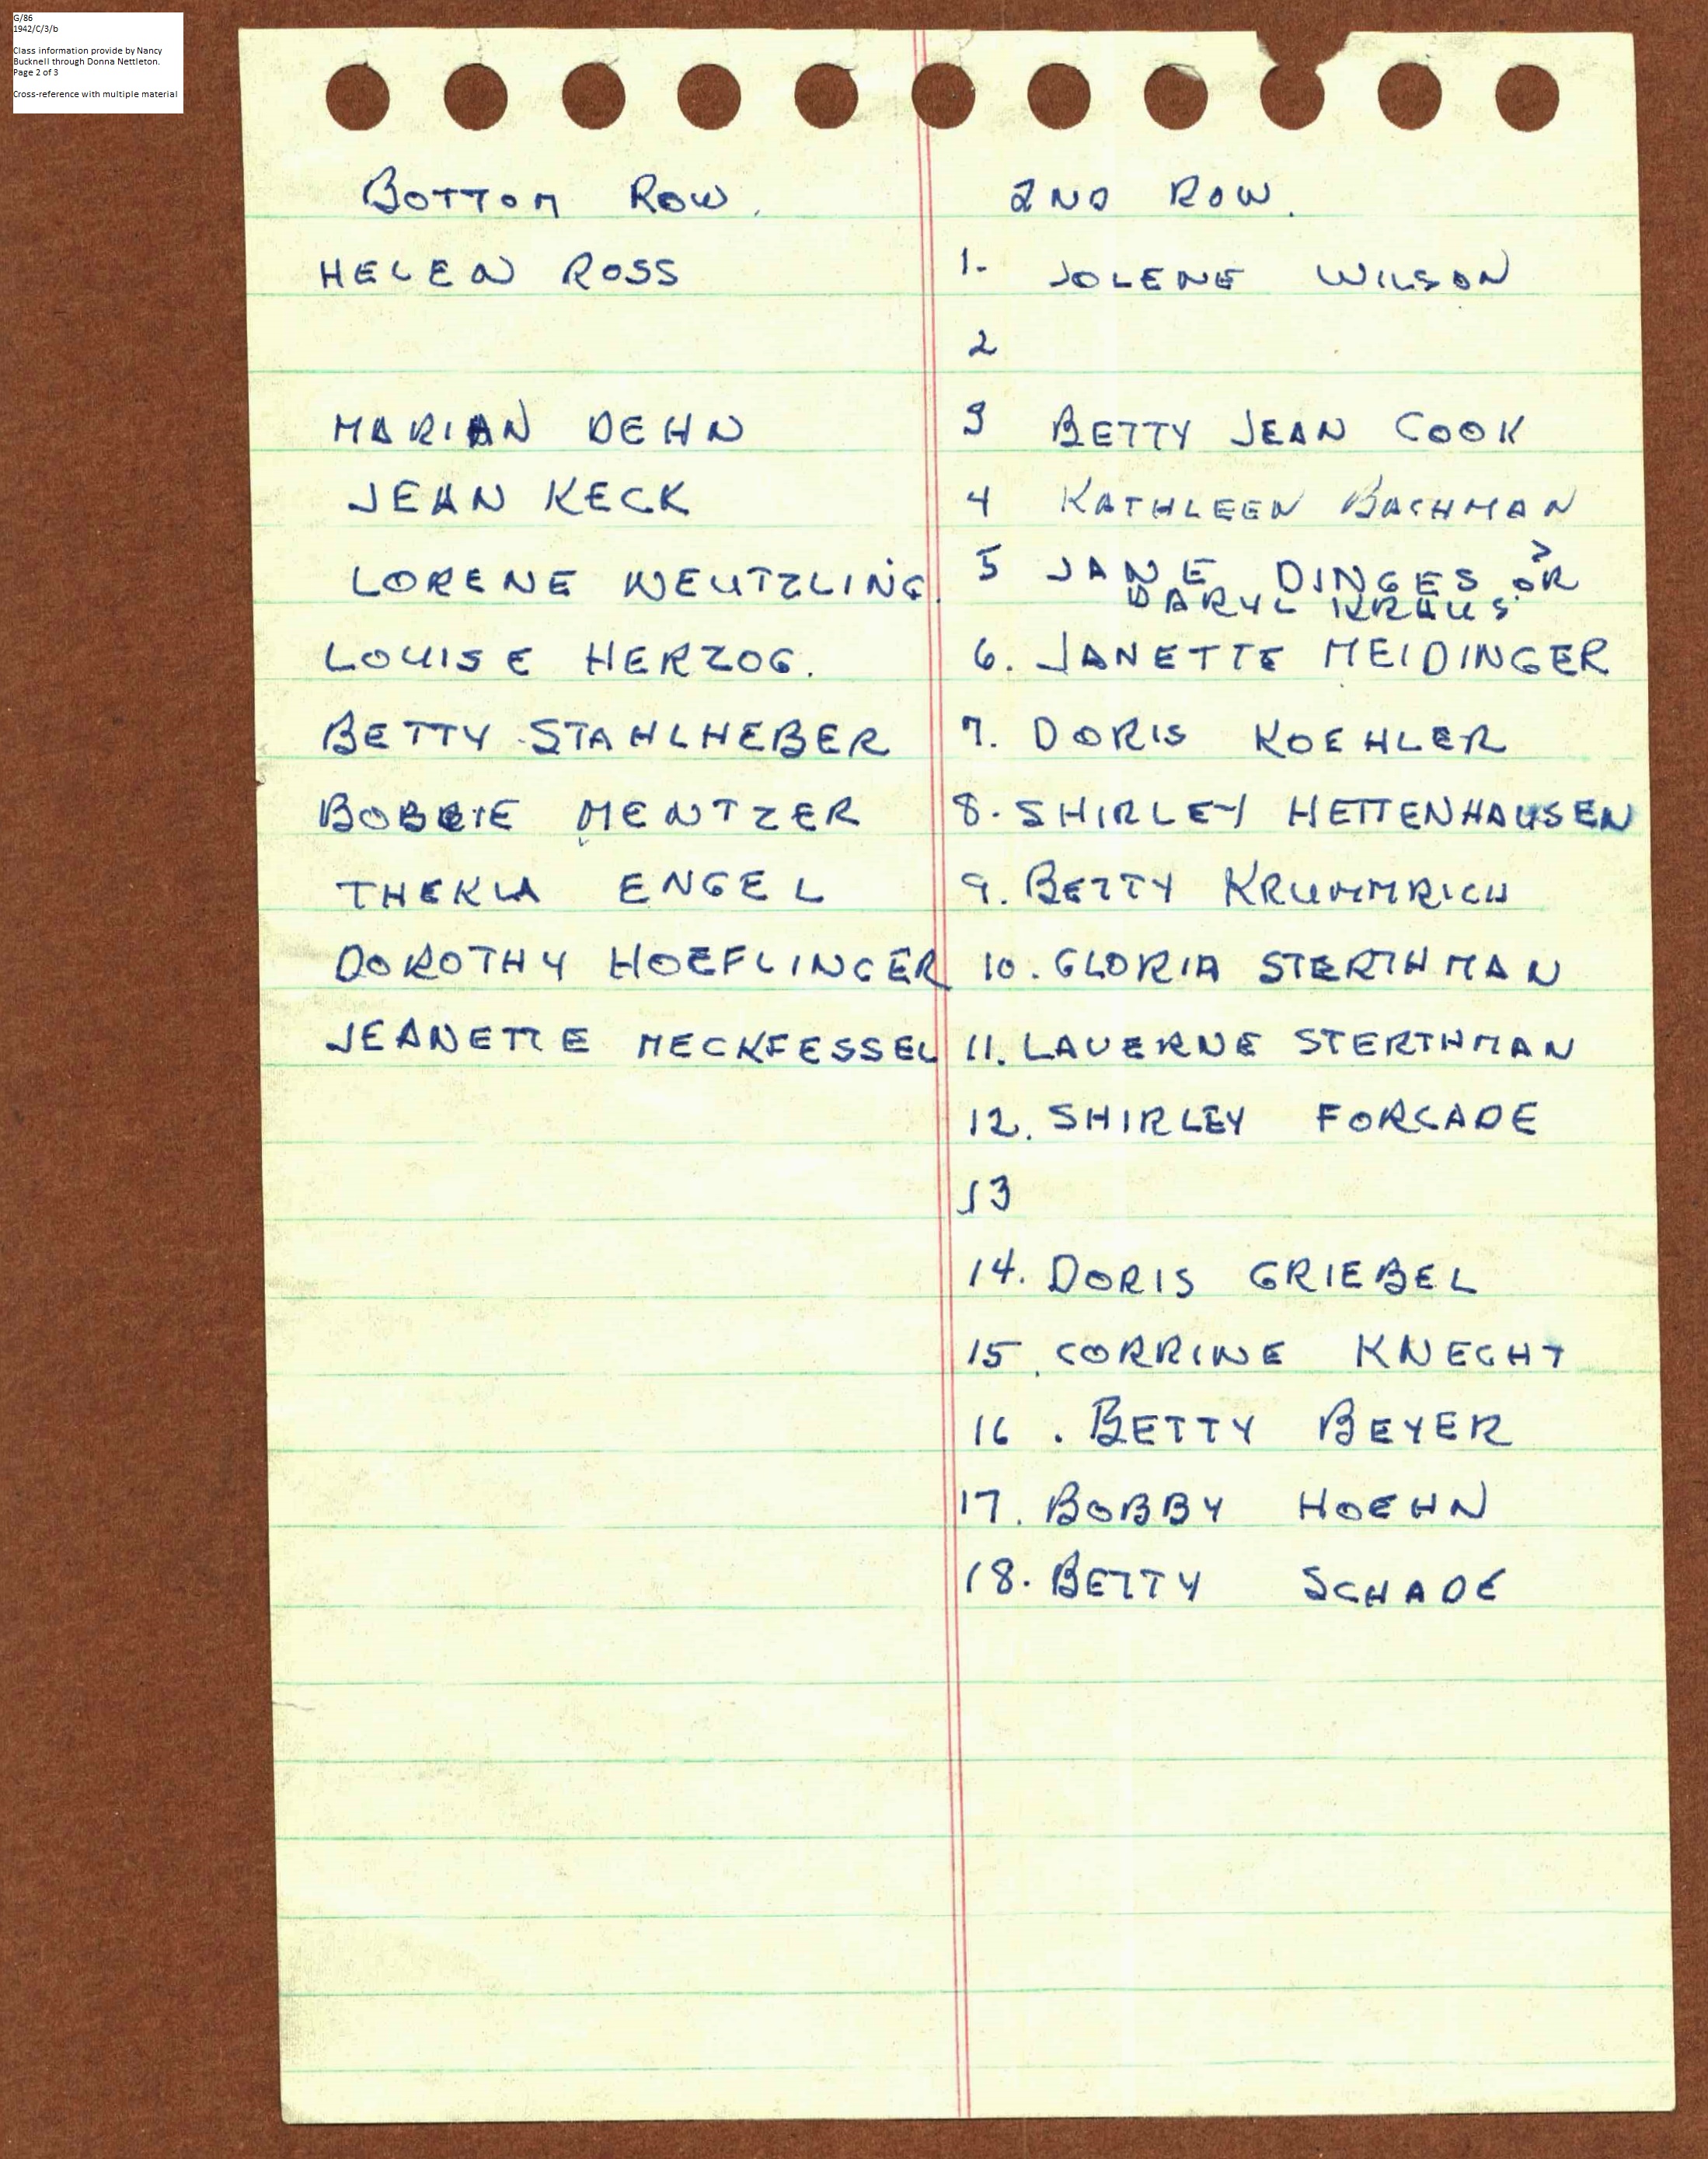 G/86
1942/C/3/b
Class information provide by Nancy
Bucknell through Donna Nettleton.
Page 2 of 3
Cross-reference with multiple material
BOTTOM ROW.
HELEN ROSS
MARIAN DEHN
JEAN KECK
LORENE WEUTZLING.
LOUISE HERZOG.
BETTY STAHLHEBER
BOBBIE MENTZER
THEKLA ENGEL
DOROTHY HOEFLINGER
JEANETTE MECKFESSEL
2ND ROW.
1- JOLENE WILSON
2
3 BETTY JEAN COOK
4 KATHLEEN BACHMAN
5 JANE DINGES OR ?
DARYL KRAUS
6. JANETTE MEIDINGER
7. DORIS KOEHLER
8. SHIRLEY HETTENHAUSEN
9. BETTY KRUMMRICH
10. GLORIA STERTHMAN
11. LAVERNE STERTHMAN
12. SHIRLEY FORCADE
13
14. DORIS GRIEBEL
15. CORRINE KNECHT
16. BETTY BEYER
17. BOBBY HOEHN
18. BETTY SCHADE